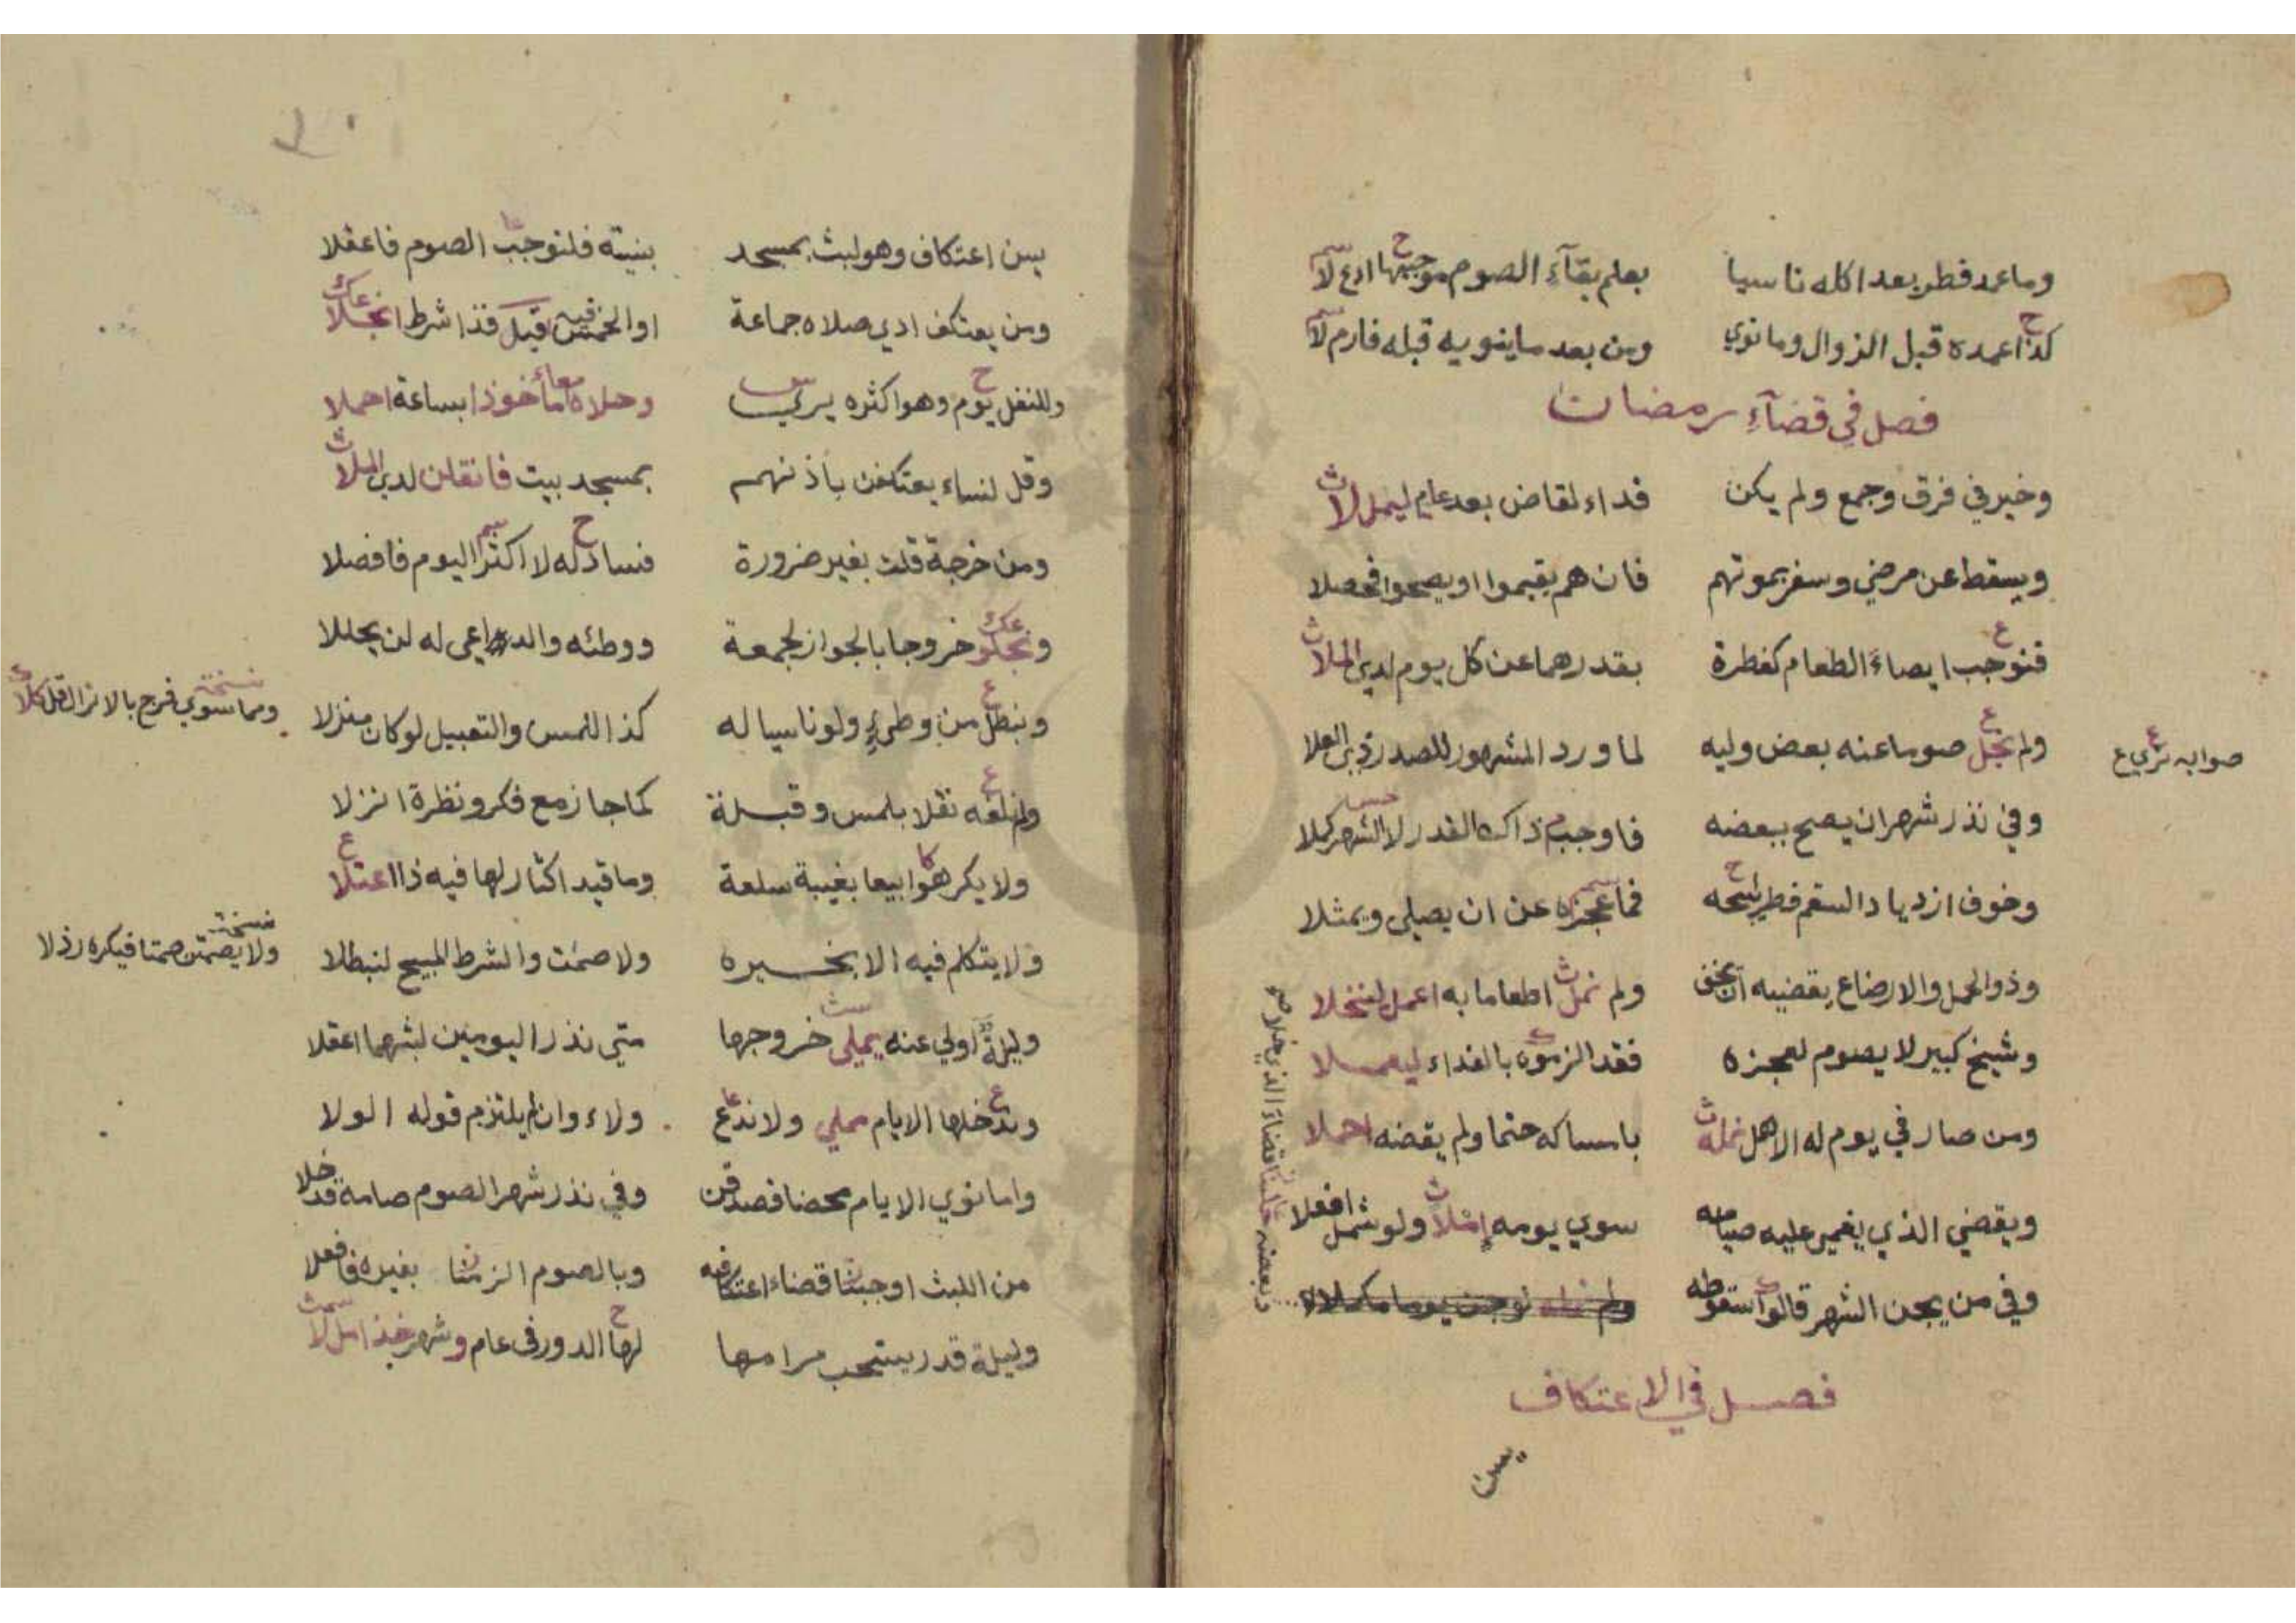 وما عمد فطر بعد اكله ناسيا بعلم بقآء الصوم موجبها ادع لا
كذا عمده قبل الزوال وما نوي ومن بعد ما ينويه قبله فارم لا
فصل في قضآء رمضان
وخير في فرق وجمع ولم يكن فداء لقاض بعد عام ليمل لا
ويسقط عن مرضي وسفر بموتهم فان هم يقيموا او يصحوا فحصلا
فنوجب ايصاء الطعام كفطرة بقدرهما عن كل يوم لدي الملا
ولم نجل صوما عنه بعض وليه لما ورد المشهور للصدر ذي العلا
صوابه نري ع
وفي نذر شهر ان يصح ببعضه فاوجب ذاك القدر لا الشهر كملا
وخوف ازدياد السقم فطر يتحه فما عجزه عن ان يصلي ويمثلا
وذو الحمل والارضاع يقضيه ان يخف ولم نمل اطعاما به اعمل لننخلا
وشيخ كبير لا يصوم لعجزه فقد الزموه بالفداء ليعملا
ومن صار في يوم له الاهل نمله بامساكه حتما ولم يقضه احملا
ويقضي الذي يغمي عليه صيامه سوي يومه املا ولو شمل افعلا
وفي من يجن الشهر قالوا سقوطه
وبعضه قضاء الذي خلا صح
فصل في الاعتكاف
يسن
يسن اعتكاف وهو لبث بمسجد بنيته فلنوجب الصوم فاعقلا
ومن يعتكف ادي صلاه جماعة او الخمس فيه قيل فذا شرط انجلا
وللنفل يوم وهو اكثره يري وحلاه مأخوذا بساعة احملا
وقل لنساء يعتكفن باذنهم بمسجد بيت فانقلن لدي الملا
ومن خرجة قلت بغير ضرورة فساد له لا اكثر اليوم فافصلا
ونجلو خروجا بالجواز لجمعة ووطئه والداعي له لن يحللا
ونبطل من وطئ ولو ناسيا له كذا اللمس والتقبيل لو كان منزلا
نسخة
ومما سوي فرج بالانزال قل كلا
ولم نلغه نقلا بلمس وقبلة كما جاز مع فكر ونظرة انزلا
ولا يكرهوا بيعا بغيبة سلعة وما قيد اكثار لها فيه ذا اعتلا
ولا يتكلم فيه الا بخيره ولا صمت والشرط المبيح لنبطلا
نسخة
ولا يصمتن صمتا فيكره رذلا
وليلة اولي عنه يملي خروجها متي نذر اليومين لبثهما اعقلا
وتدخلها الايام محلي ولا ندع ولاء وان لم يلتزم قوله الولا
واما نوي الايام محضا فصدقن وفي نذر شهر الصوم صامه قد خلا
من اللبث اوجبنا قضاء اعتكافه وبالصوم الزمنا بغيره فافعلا
وليلة قدر يستحب مرامها لها الدور في عام وشهر خذ امل لا